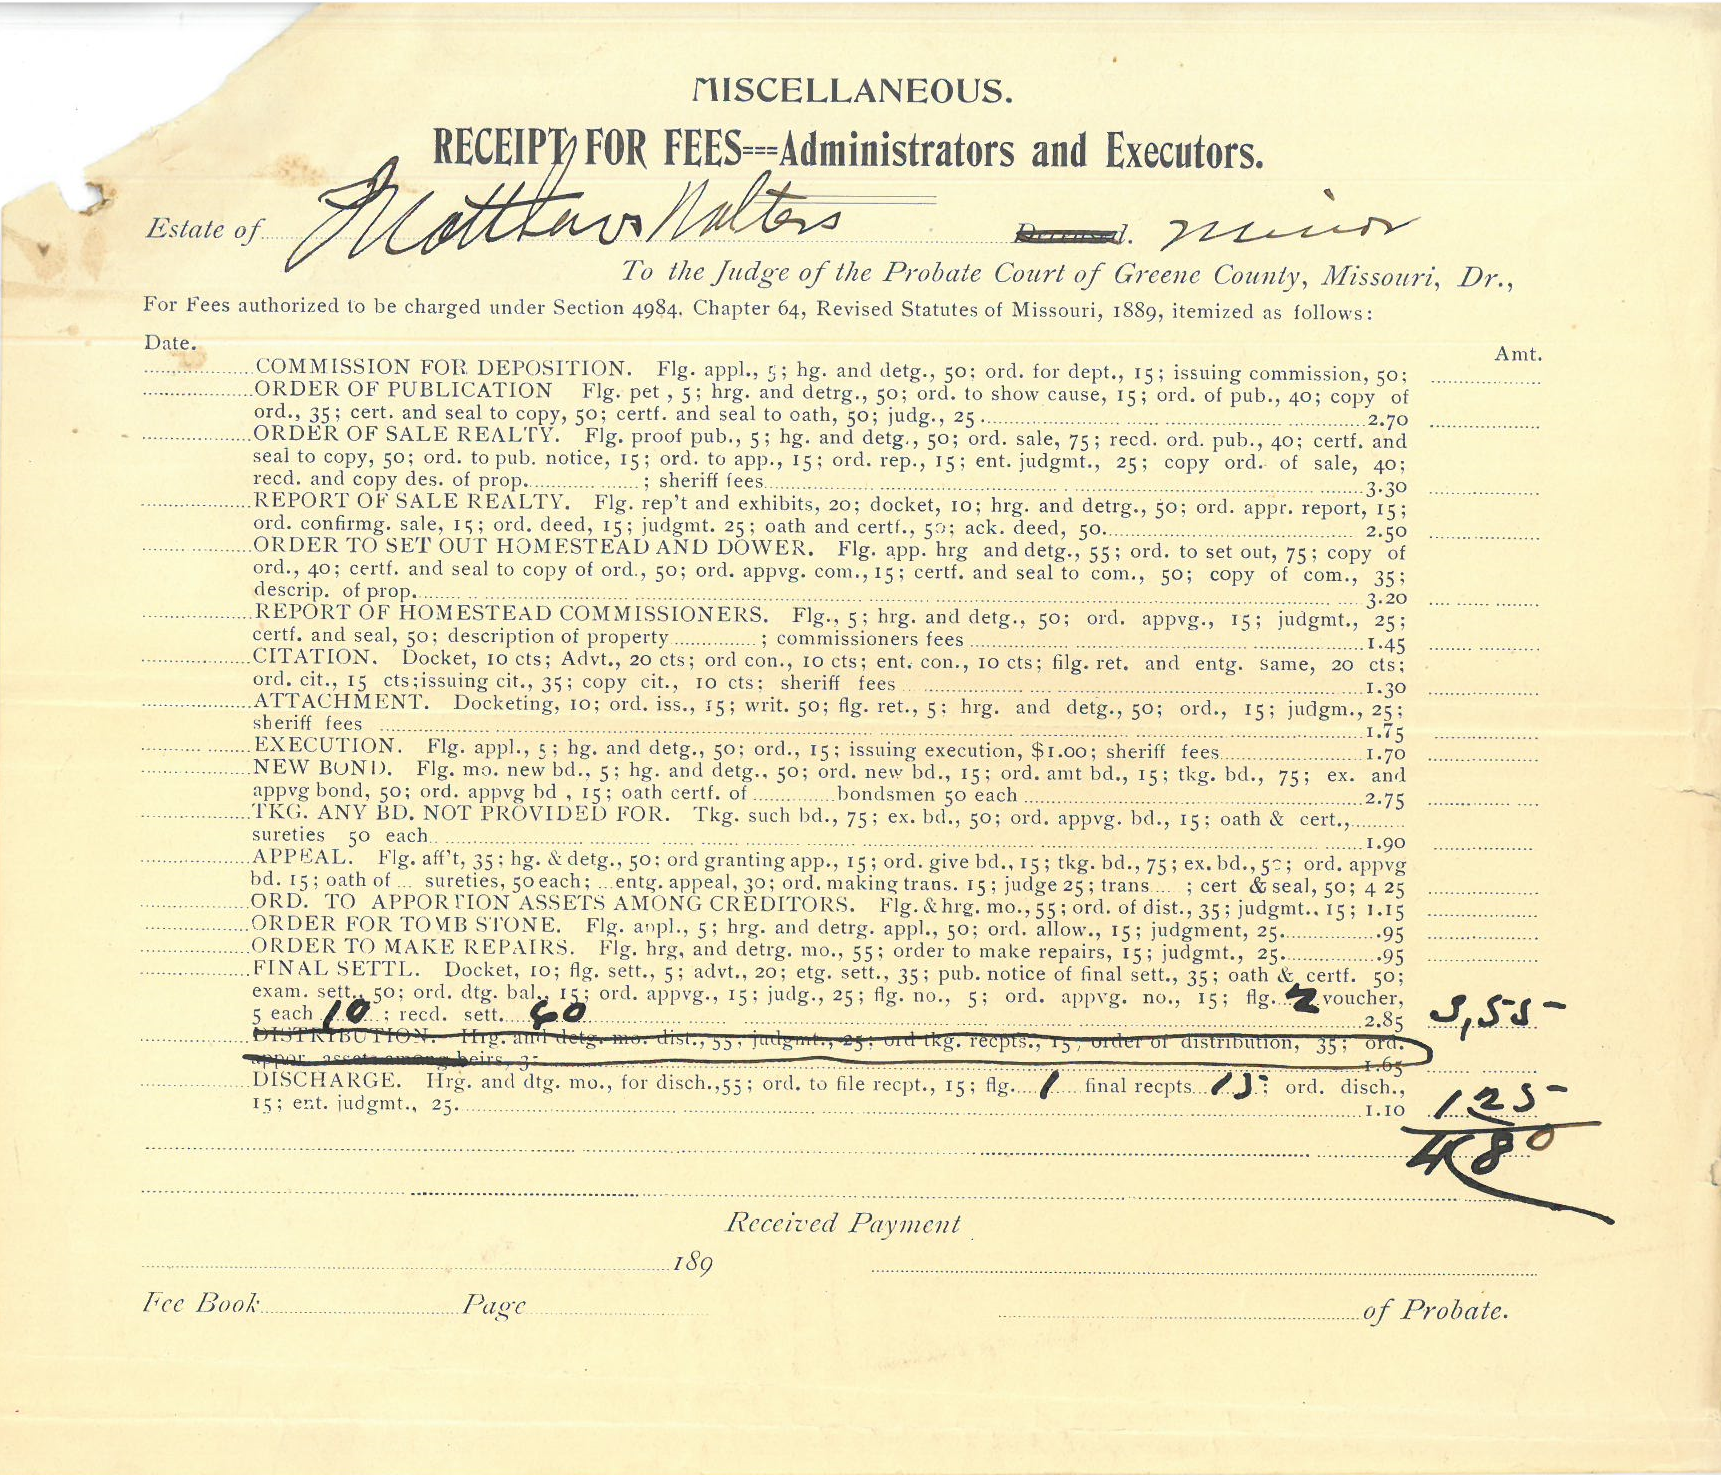 MISCELLANEOUS.
RECEIPT FOR FEES===Administrators and Executors.
Estate of Matthew Walters Deceased. Minor
To the Judge of the Probate Court of Greene County, Missouri, Dr.,
For Fees authorized to be charged under Section 4984, Chapter 64, Revised Statutes of Missouri, 1889, itemized as follows:
Date. Amt.
COMMISSION FOR DEPOSITION. Flg. appl., 5; hg. and detg., 50; ord. for dept., 15; issuing commission, 50;
ORDER OF PUBLICATION Flg. pet, 5; hrg. and detrg., 50; ord. to show cause, 15; ord. of pub., 40; copy of
ord., 35; cert. and seal to copy, 50; certf. and seal to oath, 50; judg., 25 2.70
ORDER OF SALE REALTY. Flg. proof pub., 5; hg. and detg., 50; ord. sale, 75; recd. ord. pub., 40; certf. and
seal to copy, 50; ord. to pub. notice, 15; ord. to app., 15; ord. rep., 15; ent. judgmt., 25; copy ord. of sale, 40;
recd. and copy des. of prop. ; sheriff fees 3.30
REPORT OF SALE REALTY. Flg. rep't and exhibits, 20; docket, 10; hrg. and detrg., 50; ord. appr. report, 15;
ord. confirmg. sale, 15; ord. deed, 15; judgmt. 25; oath and certf., 50; ack. deed, 50. 2.50
ORDER TO SET OUT HOMESTEAD AND DOWER. Flg. app. hrg and detg., 55; ord. to set out, 75; copy of
ord., 40; certf. and seal to copy of ord., 50; ord. appvg. com., 15; certf. and seal to com., 50; copy of com., 35;
descrip. of prop. 3.20
REPORT OF HOMESTEAD COMMISSIONERS. Flg., 5; hrg. and detg., 50; ord. appvg., 15; judgmt., 25;
certf. and seal, 50; description of property ; commissioners fees 1.45
CITATION. Docket, 10 cts; Advt., 20 cts; ord con., 10 cts; ent. con., 10 cts; filg. ret. and entg. same, 20 cts;
ord. cit., 15 cts; issuing cit., 35; copy cit., 10 cts; sheriff fees 1.30
ATTACHMENT. Docketing, 10; ord. iss., 15; writ. 50; flg. ret., 5; hrg. and detg., 50; ord., 15; judgm., 25;
sheriff fees 1.75
EXECUTION. Flg. appl., 5; hg. and detg., 50; ord., 15; issuing execution, $1.00; sheriff fees 1.70
NEW BOND. Flg. mo. new bd., 5; hg. and detg., 50; ord. new bd., 15; ord. amt bd., 15; tkg. bd., 75; ex. and
appvg bond, 50; ord. appvg bd, 15; oath certf. of bondsmen 50 each 2.75
TKG. ANY BD. NOT PROVIDED FOR. Tkg. such bd., 75; ex. bd., 50; ord. appvg. bd., 15; oath & cert.,
sureties 50 each 1.90
APPEAL. Flg. aff't, 35; hg. & detg., 50; ord granting app., 15; ord. give bd., 15; tkg. bd., 75; ex. bd., 50; ord. appvg
bd. 15; oath of sureties, 50 each; entg. appeal, 30; ord. making trans. 15; judge 25; trans ; cert & seal, 50; 4 25
ORD. TO APPORTION ASSETS AMONG CREDITORS. Flg. & hrg. mo., 55; ord. of dist., 35; judgmt., 15; 1.15
ORDER FOR TOMB STONE. Flg. appl., 5; hrg. and detrg. appl., 50; ord. allow., 15; judgment, 25. .95
ORDER TO MAKE REPAIRS. Flg. hrg, and detrg. mo., 55; order to make repairs, 15; judgmt., 25. .95
FINAL SETTL. Docket, 10; flg. sett., 5; advt., 20; etg. sett., 35; pub. notice of final sett., 35; oath & certf. 50;
exam. sett., 50; ord. dtg. bal., 15; ord. appvg., 15; judg., 25; flg. no., 5; ord. appvg. no., 15; flg. 2 voucher,
5 each 10; recd. sett. 60 2.85 3,55
DISTRIBUTION. Hrg. and detg. mo. dist., 55; judgmt., 25; ord tkg. recpts., 15; order of distribution, 35; ord.
appor. assets among heirs, 35 1.65
DISCHARGE. Hrg. and dtg. mo., for disch., 55; ord. to file recpt., 15; flg. 1 final recpts. 15; ord. disch.,
15; ent. judgmt., 25. 1.10 125
480
Received Payment
189
Fee Book Page of Probate.